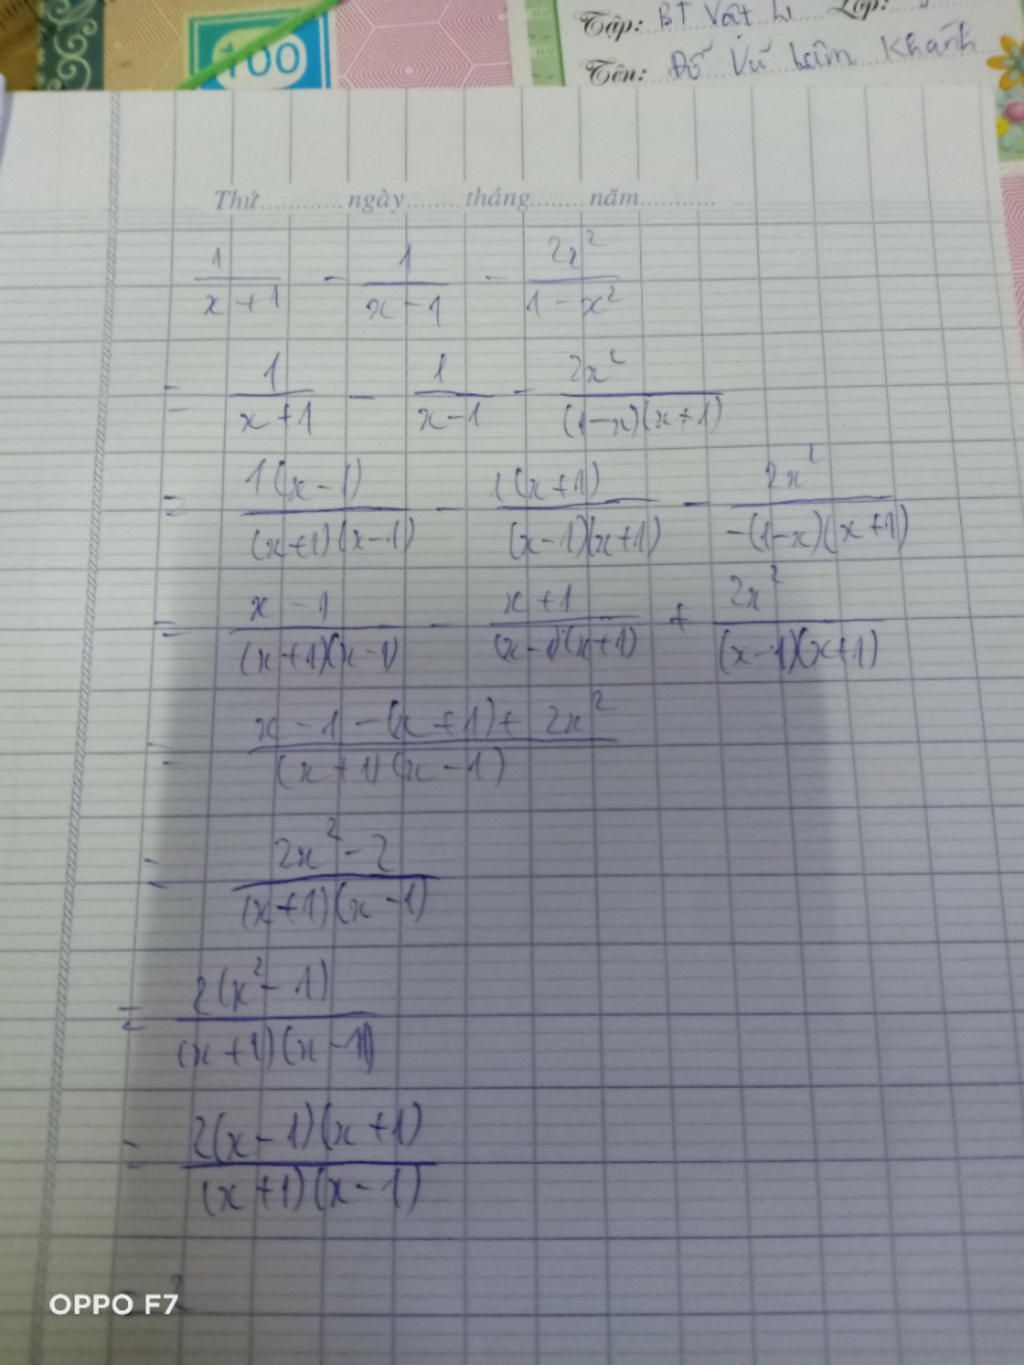 100
Tập: BT Vật Lí Lớp:
Tên: Đỗ Vũ Lâm Khanh
Thứ............ngày........tháng........năm............
1/(x+1) - 1/(x-1) - 2x²/(1-x²)
= 1/(x+1) - 1/(x-1) - 2x²/((1-x)(x+1))
= 1(x-1)/((x+1)(x-1)) - 1(x+1)/((x-1)(x+1)) - 2x²/(-(1-x)(x+1))
= (x-1)/((x+1)(x-1)) - (x+1)/((x-1)(x+1)) + 2x²/((x-1)(x+1))
= (x-1-(x+1)+2x²)/((x+1)(x-1))
= (2x²-2)/((x+1)(x-1))
= 2(x²-1)/((x+1)(x-1))
= 2(x-1)(x+1)/((x+1)(x-1))
2
OPPO F7